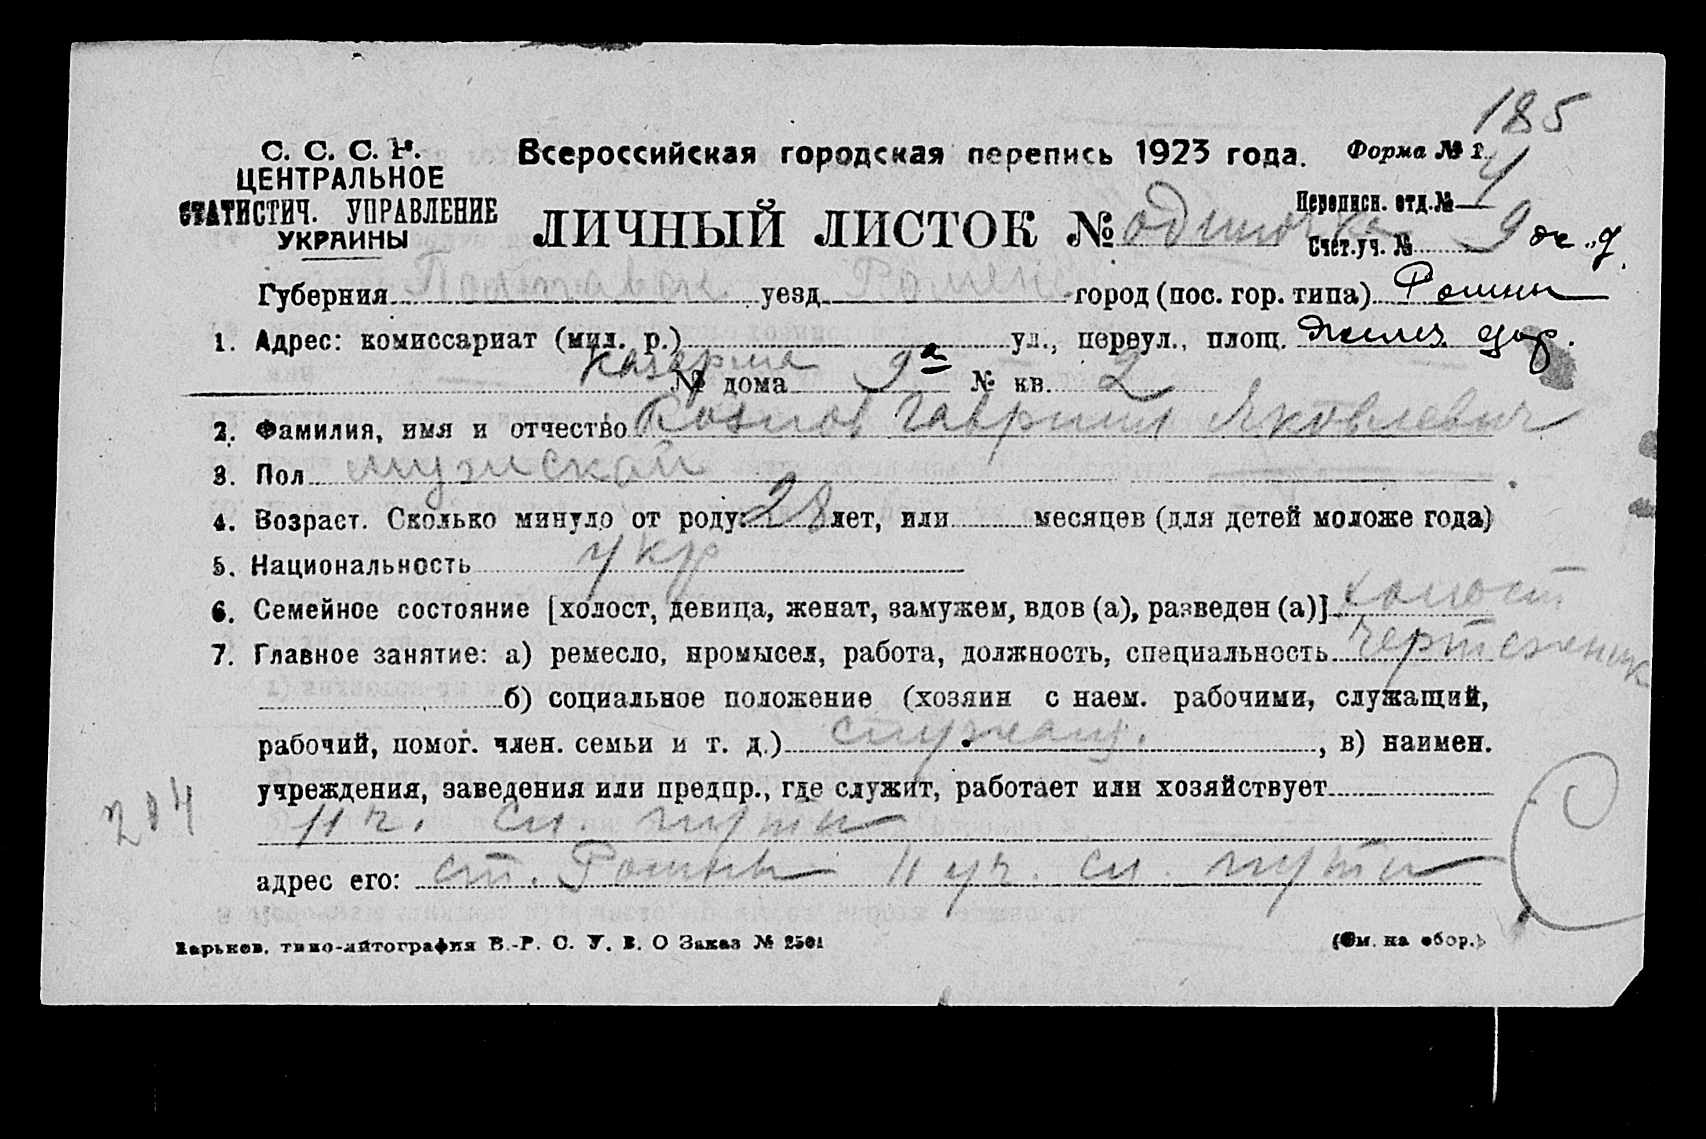 185
С. С. С. Р. Всероссийская городская перепись 1923 года. Форма № 1.
ЦЕНТРАЛЬНОЕ
СТАТИСТИЧ. УПРАВЛЕНИЕ
УКРАИНЫ
Переписн. отд. № 4
ЛИЧНЫЙ ЛИСТОК № одиночка
Счет.уч. № 9
Губерния Полтавск уезд Роменс город (пос. гор. типа) Ромны
1. Адрес: комиссариат (мил. р.) ул., переул., площ.
казарма № дома 9а № кв. 2
2. Фамилия, имя и отчество Козлов Гавриил Яковлевич
3. Пол мужской
4. Возраст. Сколько минуло от роду: 28 лет, или месяцев (для детей моложе года)
5. Национальность укр
6. Семейное состояние [холост, девица, женат, замужем, вдов (а), разведен (а)] холост
7. Главное занятие: а) ремесло, промысел, работа, должность, специальность чертежник
б) социальное положение (хозяин с наем. рабочими, служащий,
рабочий, помог. член. семьи и т. д.) служащ. , в) наимен.
учреждения, заведения или предпр., где служит, работает или хозяйствует
204
11 ч. сл. пути
адрес его: ст. Ромны 11 уч. сл. пути
Харьков, типо-литография В.-Р. С. У. В. О Заказ № 2501 (См. на обор.)